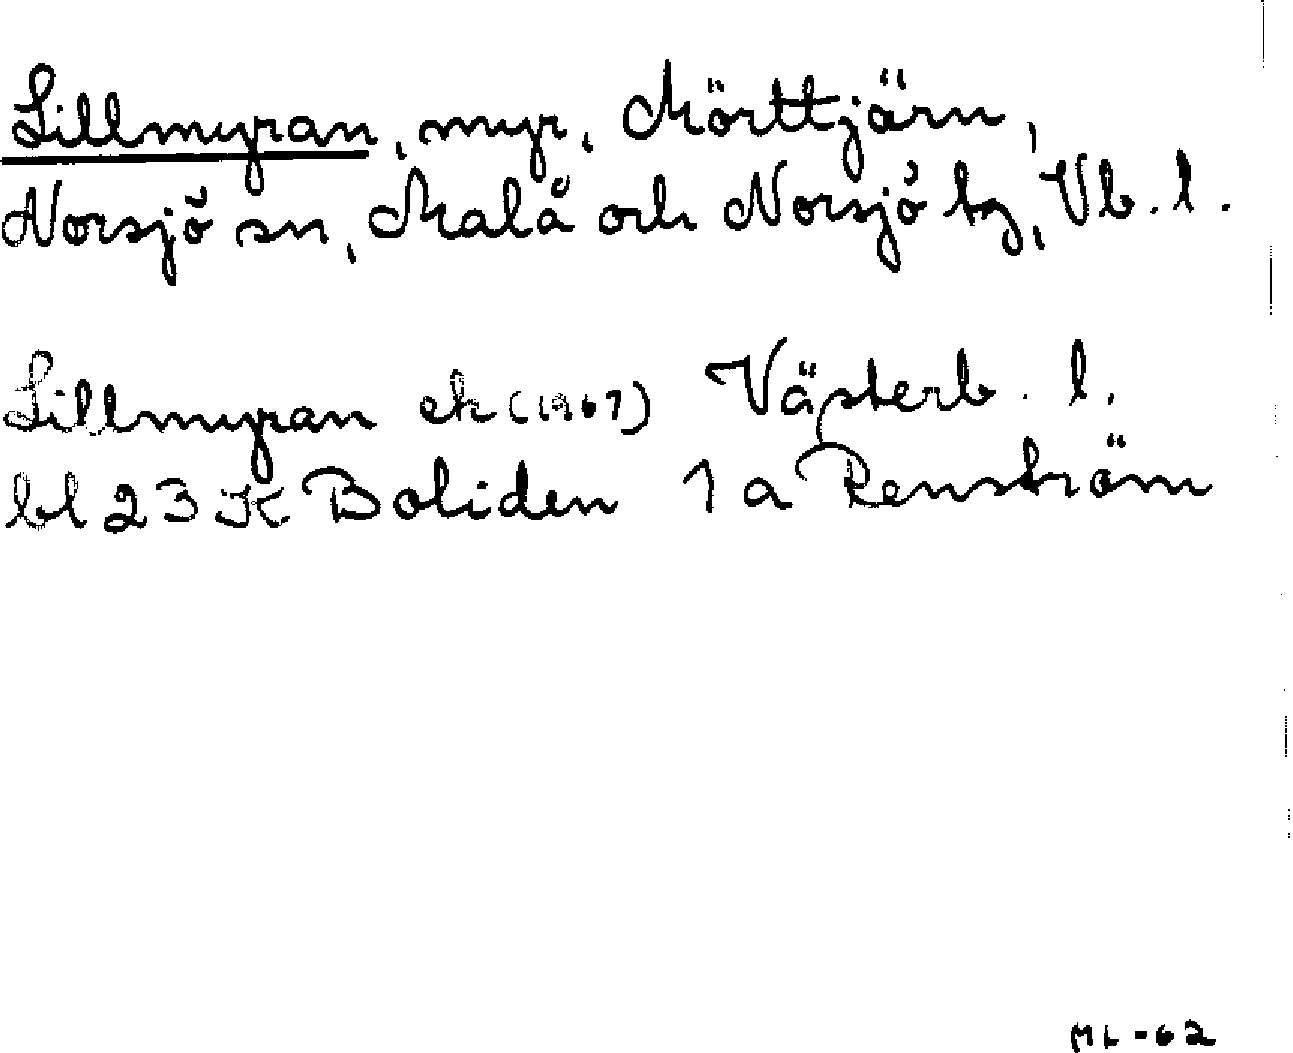 Lillmyran, myr, Mörttjärn,
Norsjö sn, Malå och Norsjö tg, Vb. l.
Lillmyran ek (1967) Västerb. l.
bl 23 K Boliden 1a Renström
ML-62